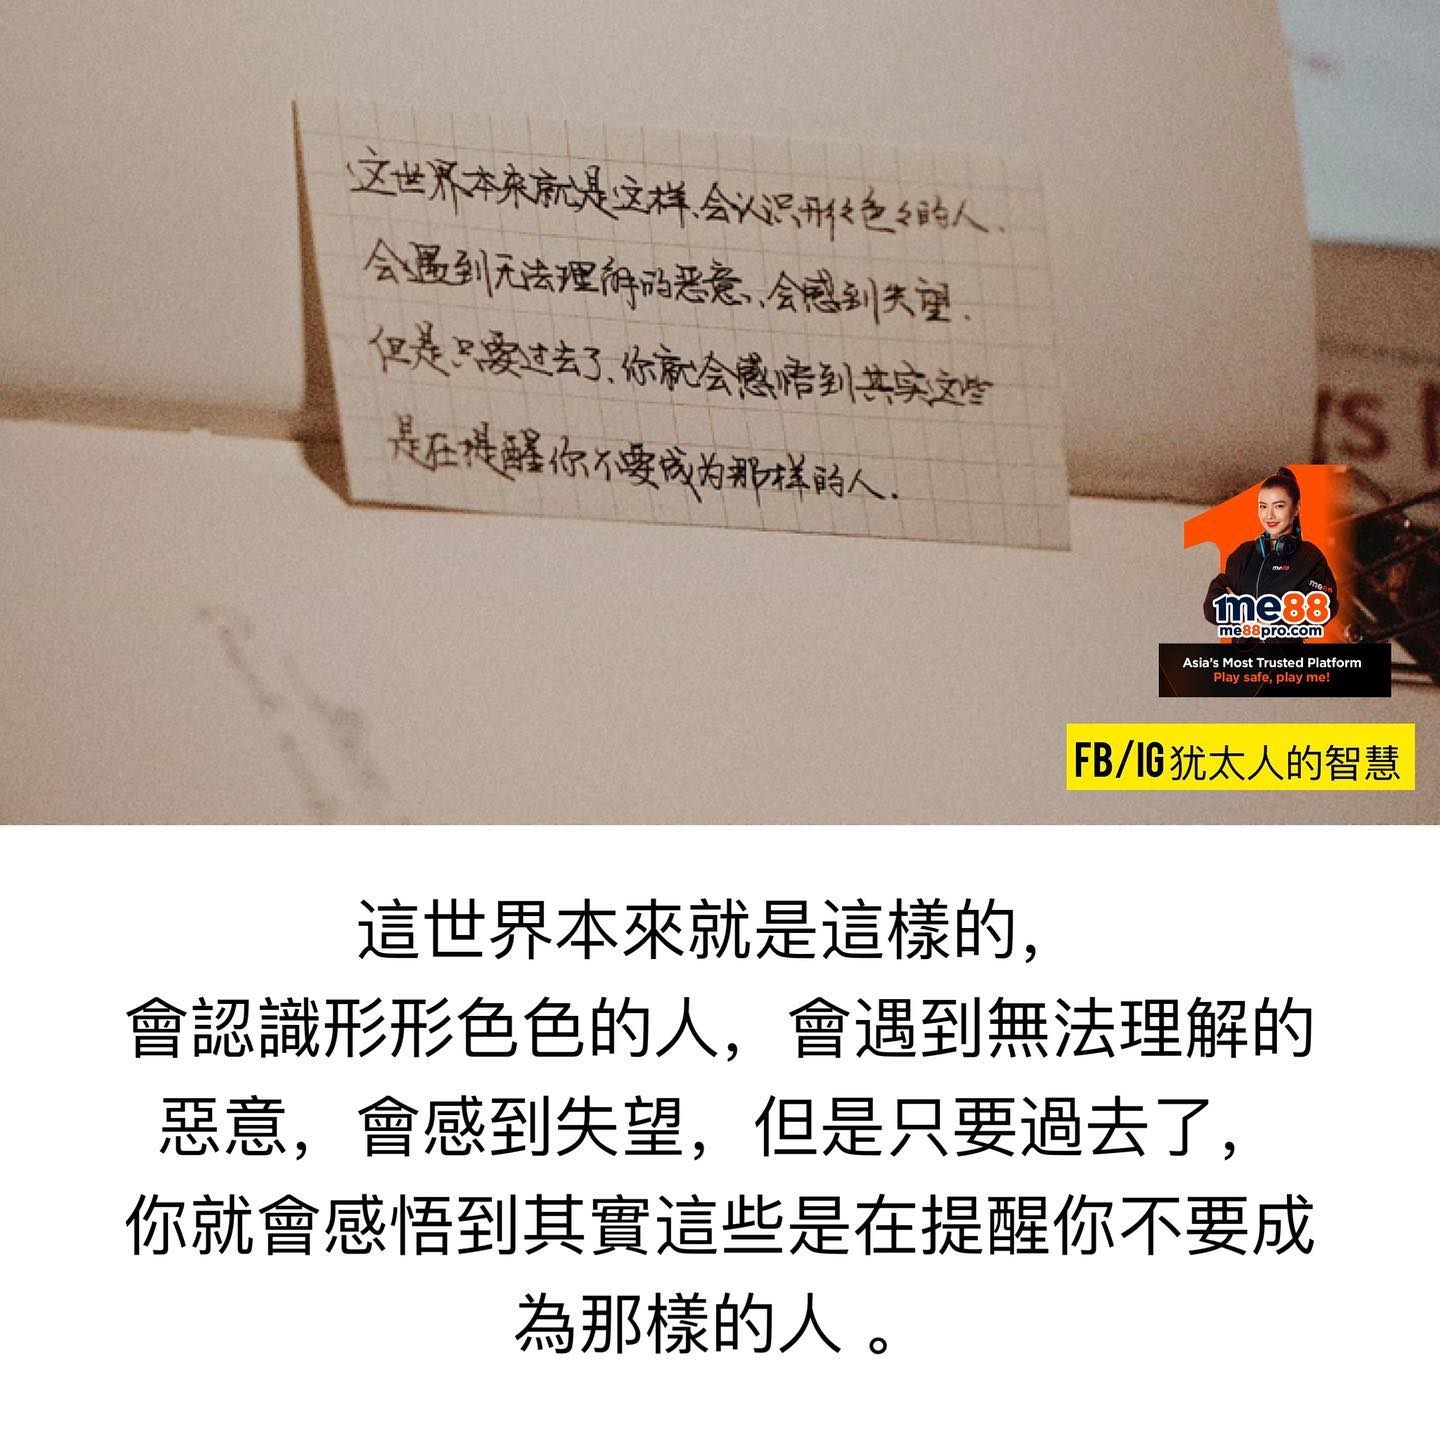 这世界本来就是这样、会认识形々色々的人、
会遇到无法理解的恶意、会感到失望、
但是只要过去了、你就会感悟到其实这些
是在提醒你不要成为那样的人.
me88
me88
1me88
me88pro.com
Asia's Most Trusted Platform
Play safe, play me!
FB/IG犹太人的智慧
這世界本來就是這樣的，
會認識形形色色的人，會遇到無法理解的
惡意，會感到失望，但是只要過去了，
你就會感悟到其實這些是在提醒你不要成
為那樣的人 。